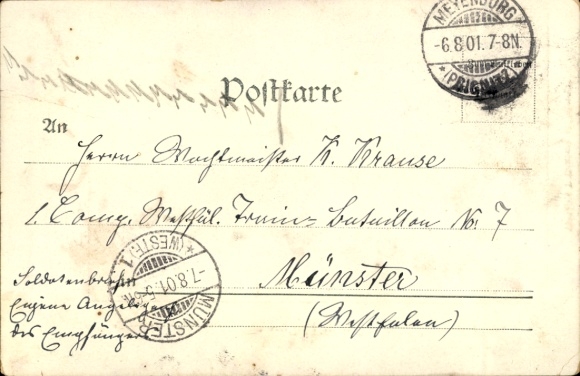 MEYENBURG
-6.8.01.7-8N.
*(PRIGNITZ)*
Postkarte
An
Herrn Wachtmeister K. Krause
1. Comp. Westfäl. Train-Bataillon No. 7
Münster
(Westfalen)
Soldatenbrief
Eigene Angelegen
des Empfängers
*(WESTF.) 1.
-7.8.01.
MÜNSTER